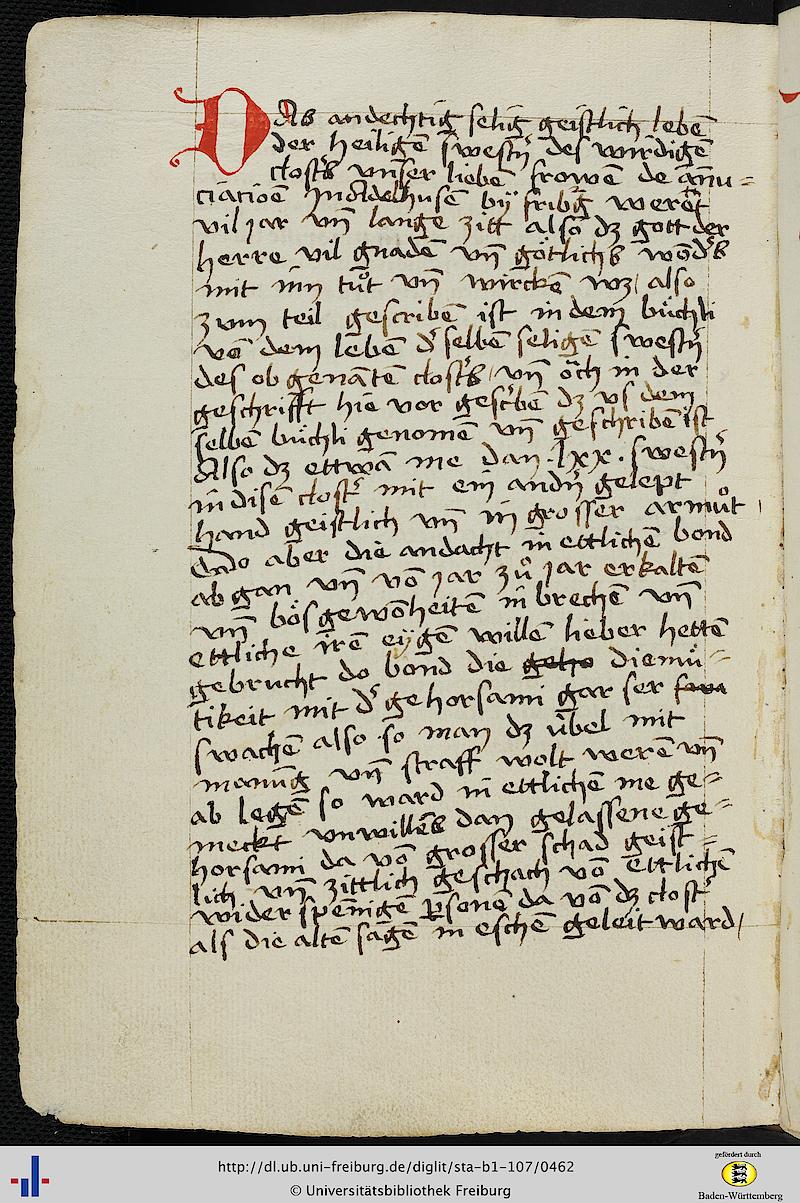 DAs andechtig selig geistlich lebē
der heiligē swestn̄ des wirdigē
clost's vnser liebē frowē de ānu=
ciatioē Jn adelhusē bÿ fribḡ werēt
vil jar vn̄ lange zitt also dz gott der
herre vil gnadē vn̄ götlichs wōd's
mit inn tuͦt vn̄ wirckē wz / also
zum teil gescribē ist in dem buͤchli
vō dem lebē d' selbē seligē swestn̄
des ob genātē clost's / vn̄ oͤch in der
geschrifft hie vor gesc'bē dz vs dem
selbē buͤchli genomē vn̄ geschribē ist
Also dz ettwā me dan .lxx. swestn̄
in disē clost' mit ein andn̄ gelept
hand geistlich vn̄ in grosser armuͦt /
Dado aber die andacht in ettlichē bond
ab gan vn̄ vō jar zuͦ jar erkaltē
vn̄ boͤs gewōheitē in brechē vn̄
ettliche irē eÿgē willē lieber hettē
gebrucht do bond die diemuͤ=
tikeit mit d' gehorsami gar ser
swachē also so man dz uͤbel mit
manūg vn̄ straff wolt werē vn̄
ab legē so ward in ettlichē me ge=
meckt vnwillēs dan gelassene ge=
horsami da vō grosser schad geist=
lich vn̄ zittlich geschach vō ettlichē
widerspēnigē psonē da vō dz clost'
als die altē sagē in eschē geleit ward /
http://dl.ub.uni-freiburg.de/diglit/sta-b1-107/0462
© Universitätsbibliothek Freiburg
gefördert durch
Baden-Württemberg